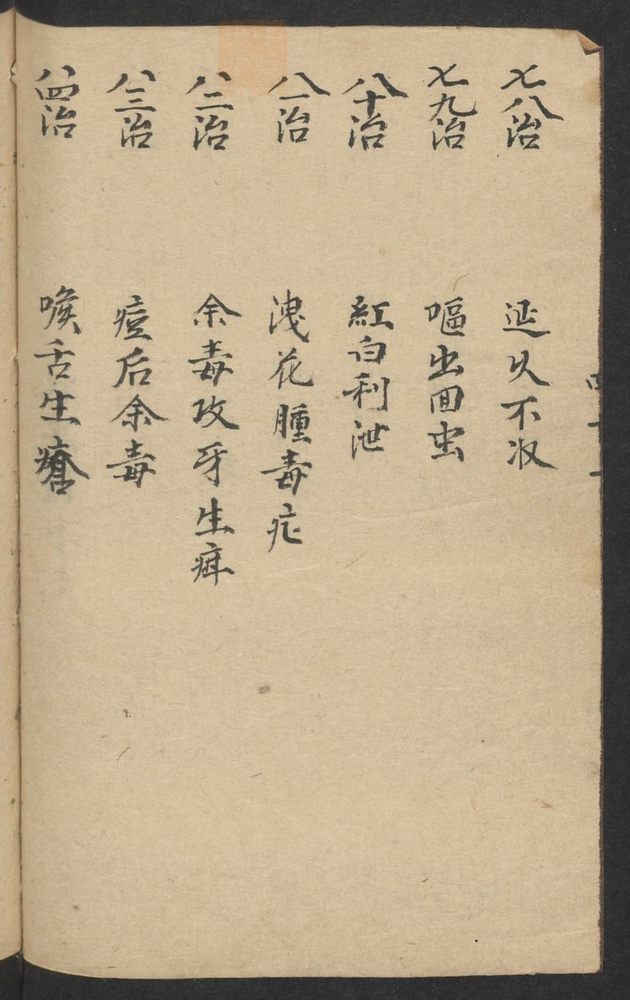 七八治 延久不收
七九治 嘔出回虫
八十治 紅白利泄
八一治 洩花腫毒症
八二治 余毒攻牙生癖
八三治 痘后余毒
八四治 喉舌生瘡